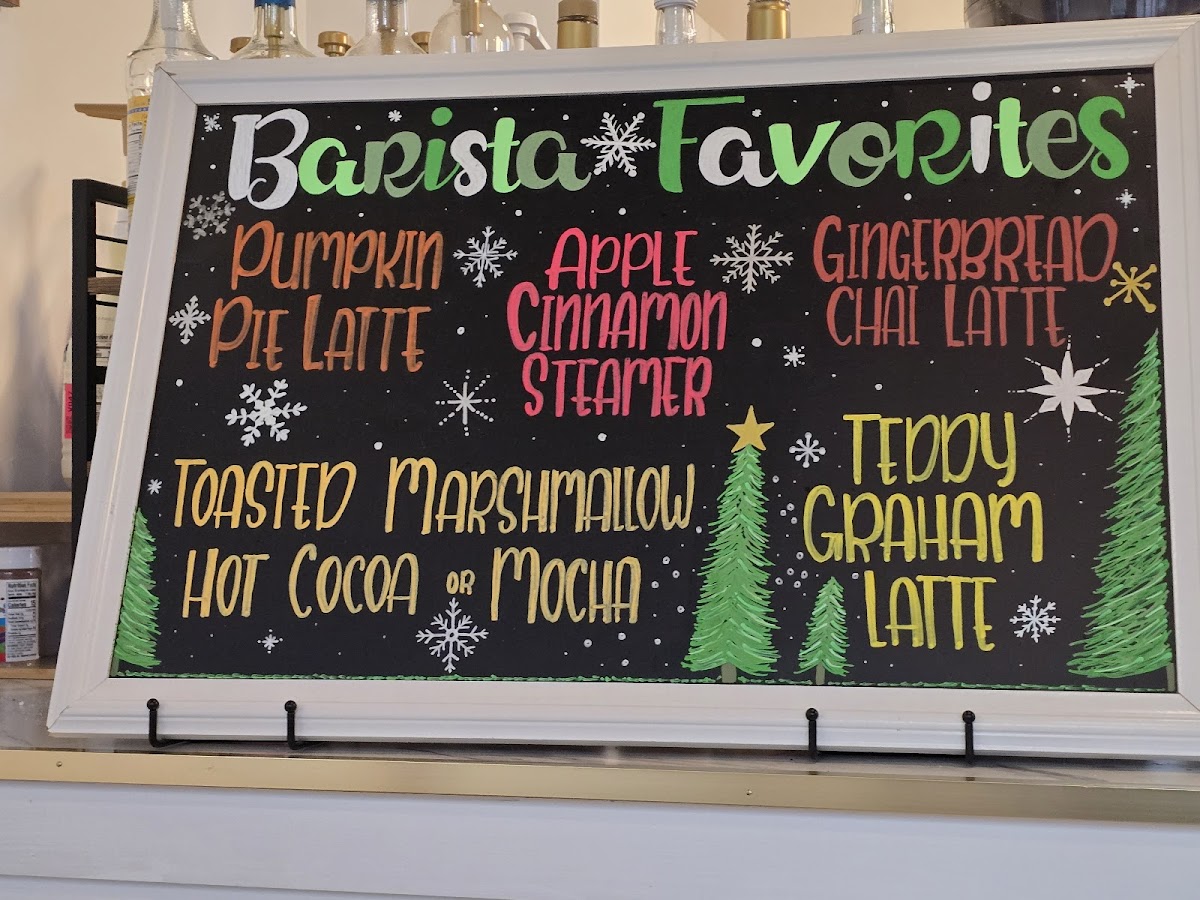 Barista Favorites
Pumpkin
Pie Latte
Apple
Cinnamon
Steamer
Gingerbread
Chai Latte
Toasted Marshmallow
Hot Cocoa or Mocha
Teddy
Graham
Latte